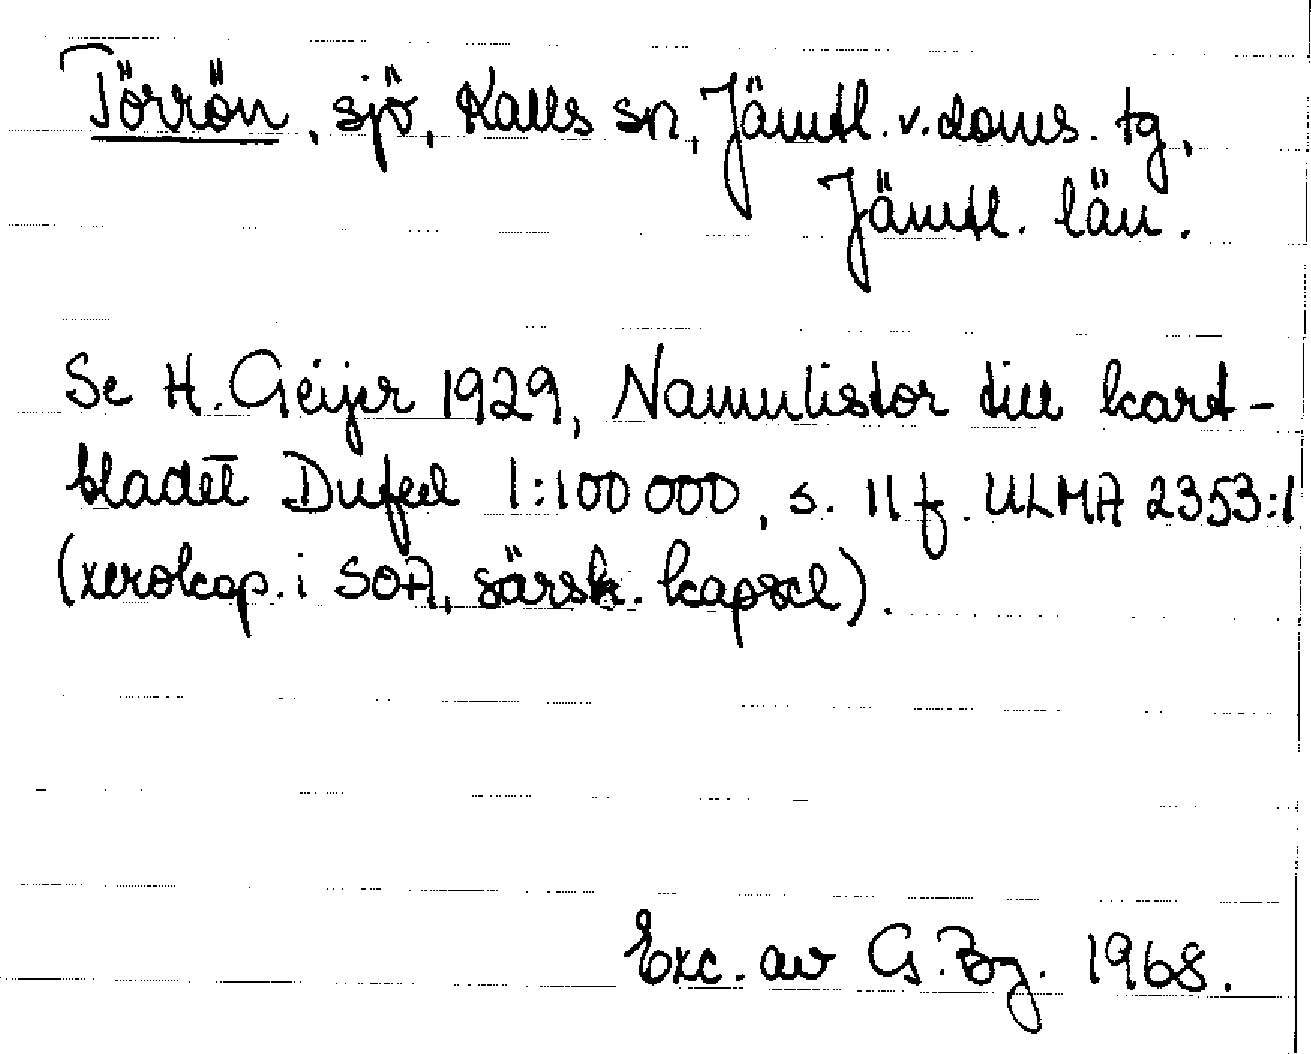 Törrön, sjö, Kalls sn, Jämtl. v. doms. tg,
Jämtl. län.
Se H. Geijer 1929, Namnlistor till kart-
bladet Dufed 1:100 000, s. 11 f. ULMA 2353:1
(xerokop. i SOA, särsk. kapsel).
Exc. av G. Bg. 1968.